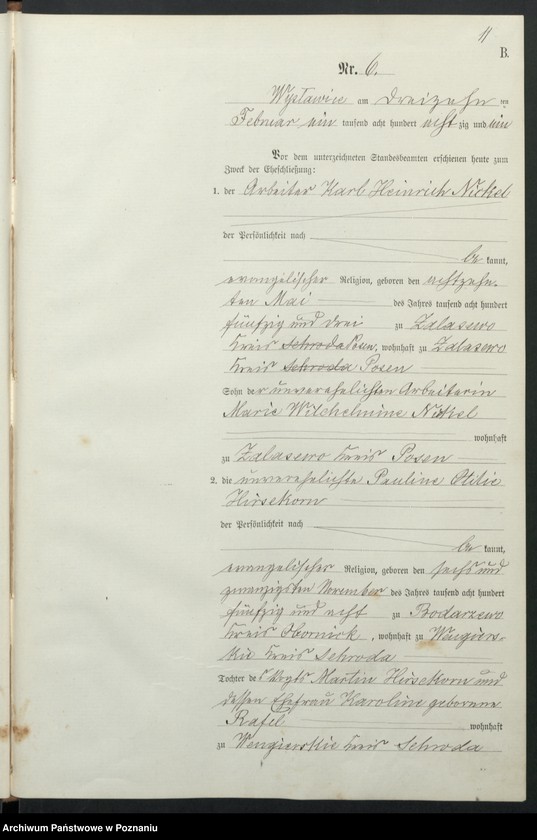 11
B.
Nr. 6.
am dreizehn ten
Februar ein tausend acht hundert acht zig und ein
Vor dem unterzeichneten Standesbeamten erschienen heute zum
Zweck der Eheschließung:
1. der Arbeiter Karl Heinrich Nickel
der Persönlichkeit nach
be kannt,
evangelischer Religion, geboren den achtzehn-
ten Mai des Jahres tausend acht hundert
fünfzig und drei zu Zalasewo
Kreis Schroda Posen, wohnhaft zu Zalasewo
Kreis Schroda Posen
Sohn der unverehelichten Arbeiterin
Marie Wilhelmine Nickel
wohnhaft
zu Zalasewo Kreis Posen
2. die unverehelichte Pauline Otilie
Hirsekorn
der Persönlichkeit nach
be kannt,
evangelischer Religion, geboren den sechs und
zwanzigsten November des Jahres tausend acht hundert
fünfzig und acht zu Bodarzewo
Kreis Obornick, wohnhaft zu Wengiers-
kie Kreis Schroda
Tochter des Vogts Martin Hirsekorn und
dessen Ehefrau Karoline geborene
Rafel wohnhaft
zu Wengierskie Kreis Schroda
Archiwum Państwowe w Poznaniu